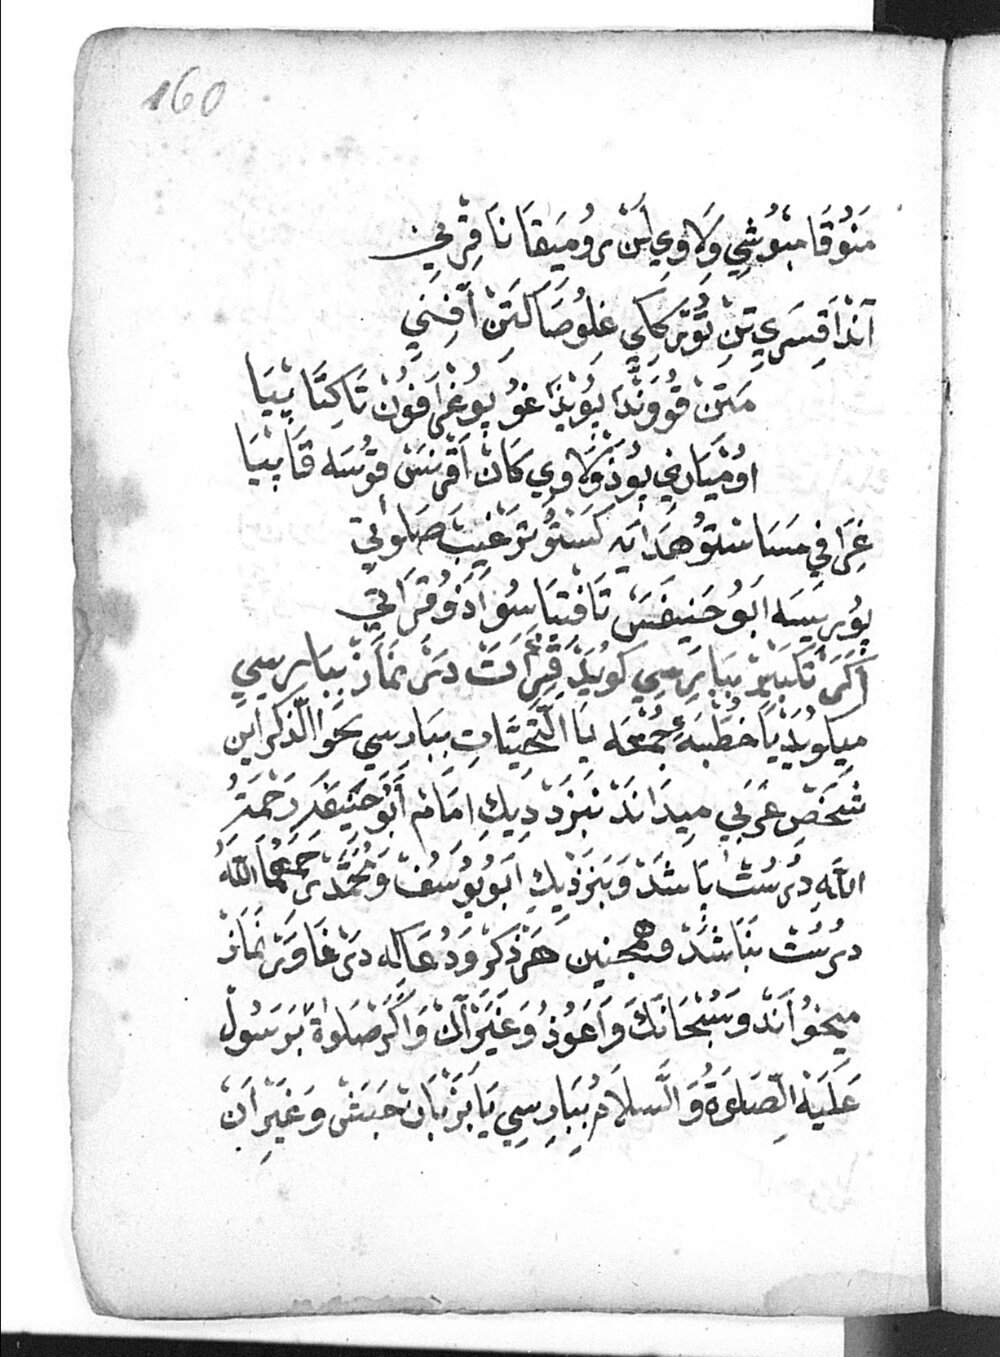 160
مَنُوقَا مبْوُشِي وَلَاوِي أَيَنْ رُومِيَقَا نَاقِرْنِي
آنْدَاقِسَرِي تِنْ تُوُتْرَكِلِي غِلُوصَا كَتَنْ اَفِنِنِي
مَتِنْ قُووَنْدَا يُويْدَا غُو يُوغْرَافُونْ تَاكِتَا پِيَا
اوُمْيَارِي يُودْ وَلَاوِي كَانْ اَقْرِنَسْ قوُسَه قَا پِيَا
غِرَافِي مَسَاسْتُو هَدَايَه كَسْتُو تَرْغِيبَ صَلوٰتِي
يُورِيسَه اَبُو حَنِيفَسْ تَافْتَا سُوادَدُو قِرَائَتِي
اَكَرْ تَكْبِيرْ بِپَارِسِي كوُيَدْ قِرَائَتْ دَرْ نَمَازْ بِپَارِسِي
مِيكوُيَدْ يَا خُطْبَهٔ جُمْعَه يَا اَلتَّحِيَّاتِ بِپَارِسِي بخوَالَدْ كَرْ اين
شَخَصْ عَرَبِي مِيدَانَدْ بَنَزْدِيكِ اِمَامْ أَبُو حَنِيفَه رَحْمَةُ
اللّٰهِ دُرُسْتْ بَاشَدْ وَبَنَزْدِيكِ اَبُويُوسُفْ وَمُحَمَّدْ رَحِمَهُمَا اللّٰهُ
دُرُسْتْ نَبَاشَدْ وهمجنين هَرْ ذِكْرْ وَدُعَا كِه دَرْ غَاوَرْ نَمَازْ
ميخوُانَنْدْ وَسُبْحَانَكَ وَاَعُوذُ وَغَيْرَ آنْ وَاَكَرْ صَلوٰةْ بَرَسُولْ
عَلَيْهِ اَلصَّلوٰةُ وَالسَّلَامُ بِپَارِسِي يَا بَزْبَانْ حَبَشْ وَغَيْرِ اَنْ